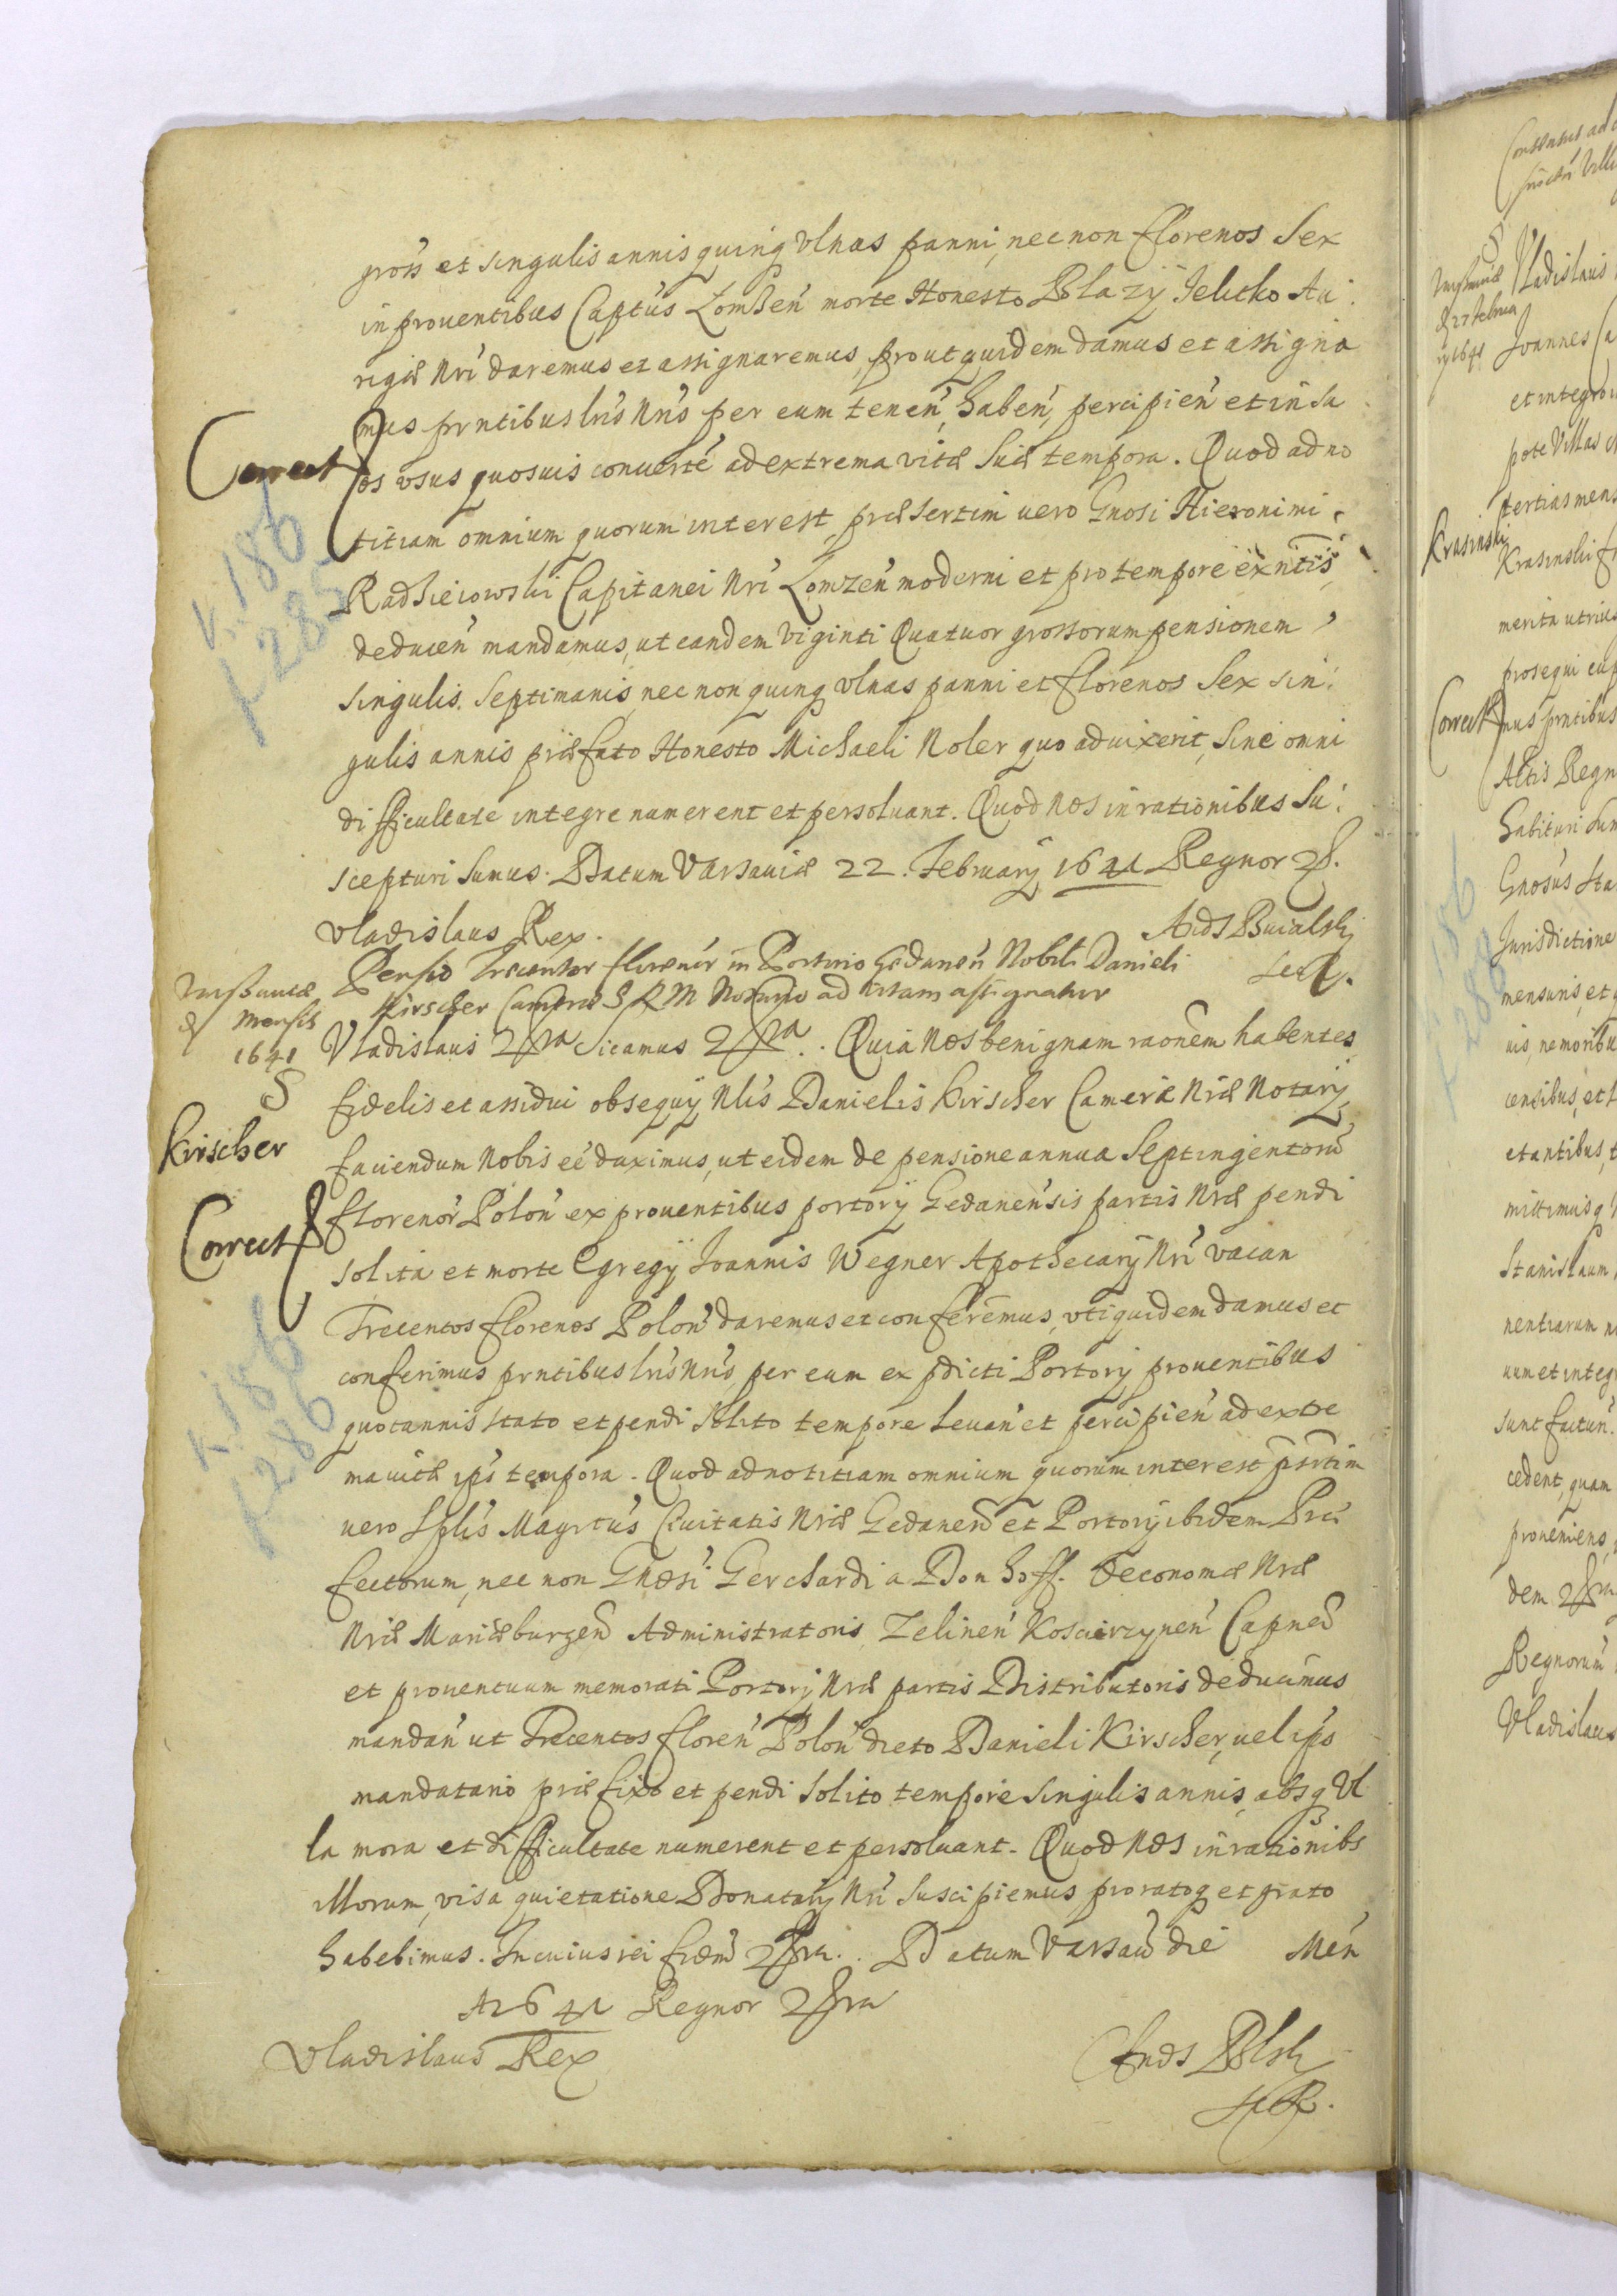 gross et singulis annis quinq ulnas panni, nec non florenos Sex
in proventibus Captus Lomzen morte Honesto Blazÿ Jelitko Au
rigæ Nri daremus et assignaremus, prout quidem damus et assigna
mus prntibus lris Nris per eum tenen, haben, percipien et in su
os usus quosvis converte ad extrema vitæ suæ tempora. Quod ad no
titiam omnium quorum interest, præsertim vero Gnosi Hieronimi
Radzieiowski Capitanei Nri Lomzen moderni et pro tempore exntis
deducen mandamus, ut eandem Viginti Quatuor grossorum pensionem
singulis Septimanis, nec non quinq ulnas panni et florenos Sex sin
gulis annis præfato Honesto Michaeli Noler quo ad vixerit, sine omni
difficultate integre numerent et persolvant. Quod nos in rationibus su
scepturi sumus. Datum Varsaviæ 22. Februarÿ 1641 Regnor
Vladislaus Rex.
Correct
K. 186
f 285
Pensio Trecentor florenor in Portorio Gedanen Nobili Danieli
Kirscher Cameræ S R M Notario ad vitam assignatur
Mensis
1641
Kirscher
Correct
K 186
f 286
Vladislaus Sicamus. Quia nos benignam raonem habentes
fidelis et assidui obsequÿ Nlis Danielis Kirscher Cameræ Nræ Notarÿ
faciendum Nobis eē duximus, ut eidem de pensione annua Septingentoru
florenor Polon ex proventibus portorÿ Gedanensis partis Nræ pendi
solita et morte Egregÿ Joannis Wegner Apothecarÿ Nri vacan
Trecentos florenos Polon daremus et conferemus, uti quidem damus et
conferimus prntibus lris Nris, per eum ex pdicti Portorÿ proventibus
quotannis stato et pendi solito tempore levan et percipien ad extre
ma vitæ ips tempora. Quod ad notitiam omnium quorum interest psrtim
vero Spls Magrtus Civitatis Nræ Gedanen et Portorÿ ibidem Præ
fectorum, nec non Gnosi Gerchardi a Donhoff. Oeconomæ Nræ
Nræ Mariæburgen Administratoris Zelinen Koscierzynen Capnei
et proventuum memorati Portorÿ Nræ partis Distributoris deducimus
mandan ut Trecentos floren Polon dicto Danieli Kirscher, vel ips
mandatario præfixo et pendi solito tempore singulis annis, absq Ul
la mora et difficultate numerent et persolvant. Quod nos in rationibs
illorum, visa quietatione Donatarÿ Nri suscipiemus, pro ratoq et grato
habebimus. In cuius rei fidem. Datum Varsav die Men
A 1641 Regnor
Vladislaus Rex
Vladislaus
Joannes
et integro
pote Villas
Krasinski
Krasinski
merita
prosequi
Correct
mus prntibus
Actis Regn
habituri sun
Gnosus Sta
Jurisdictione
mensuris, et
vis, nemoribu
censibus, et
mittimusq
Stanislaum
nentiarum
vum et integr
sunt futur
cedent, quam
proveniens
dem
Regnorum
Vladislaus